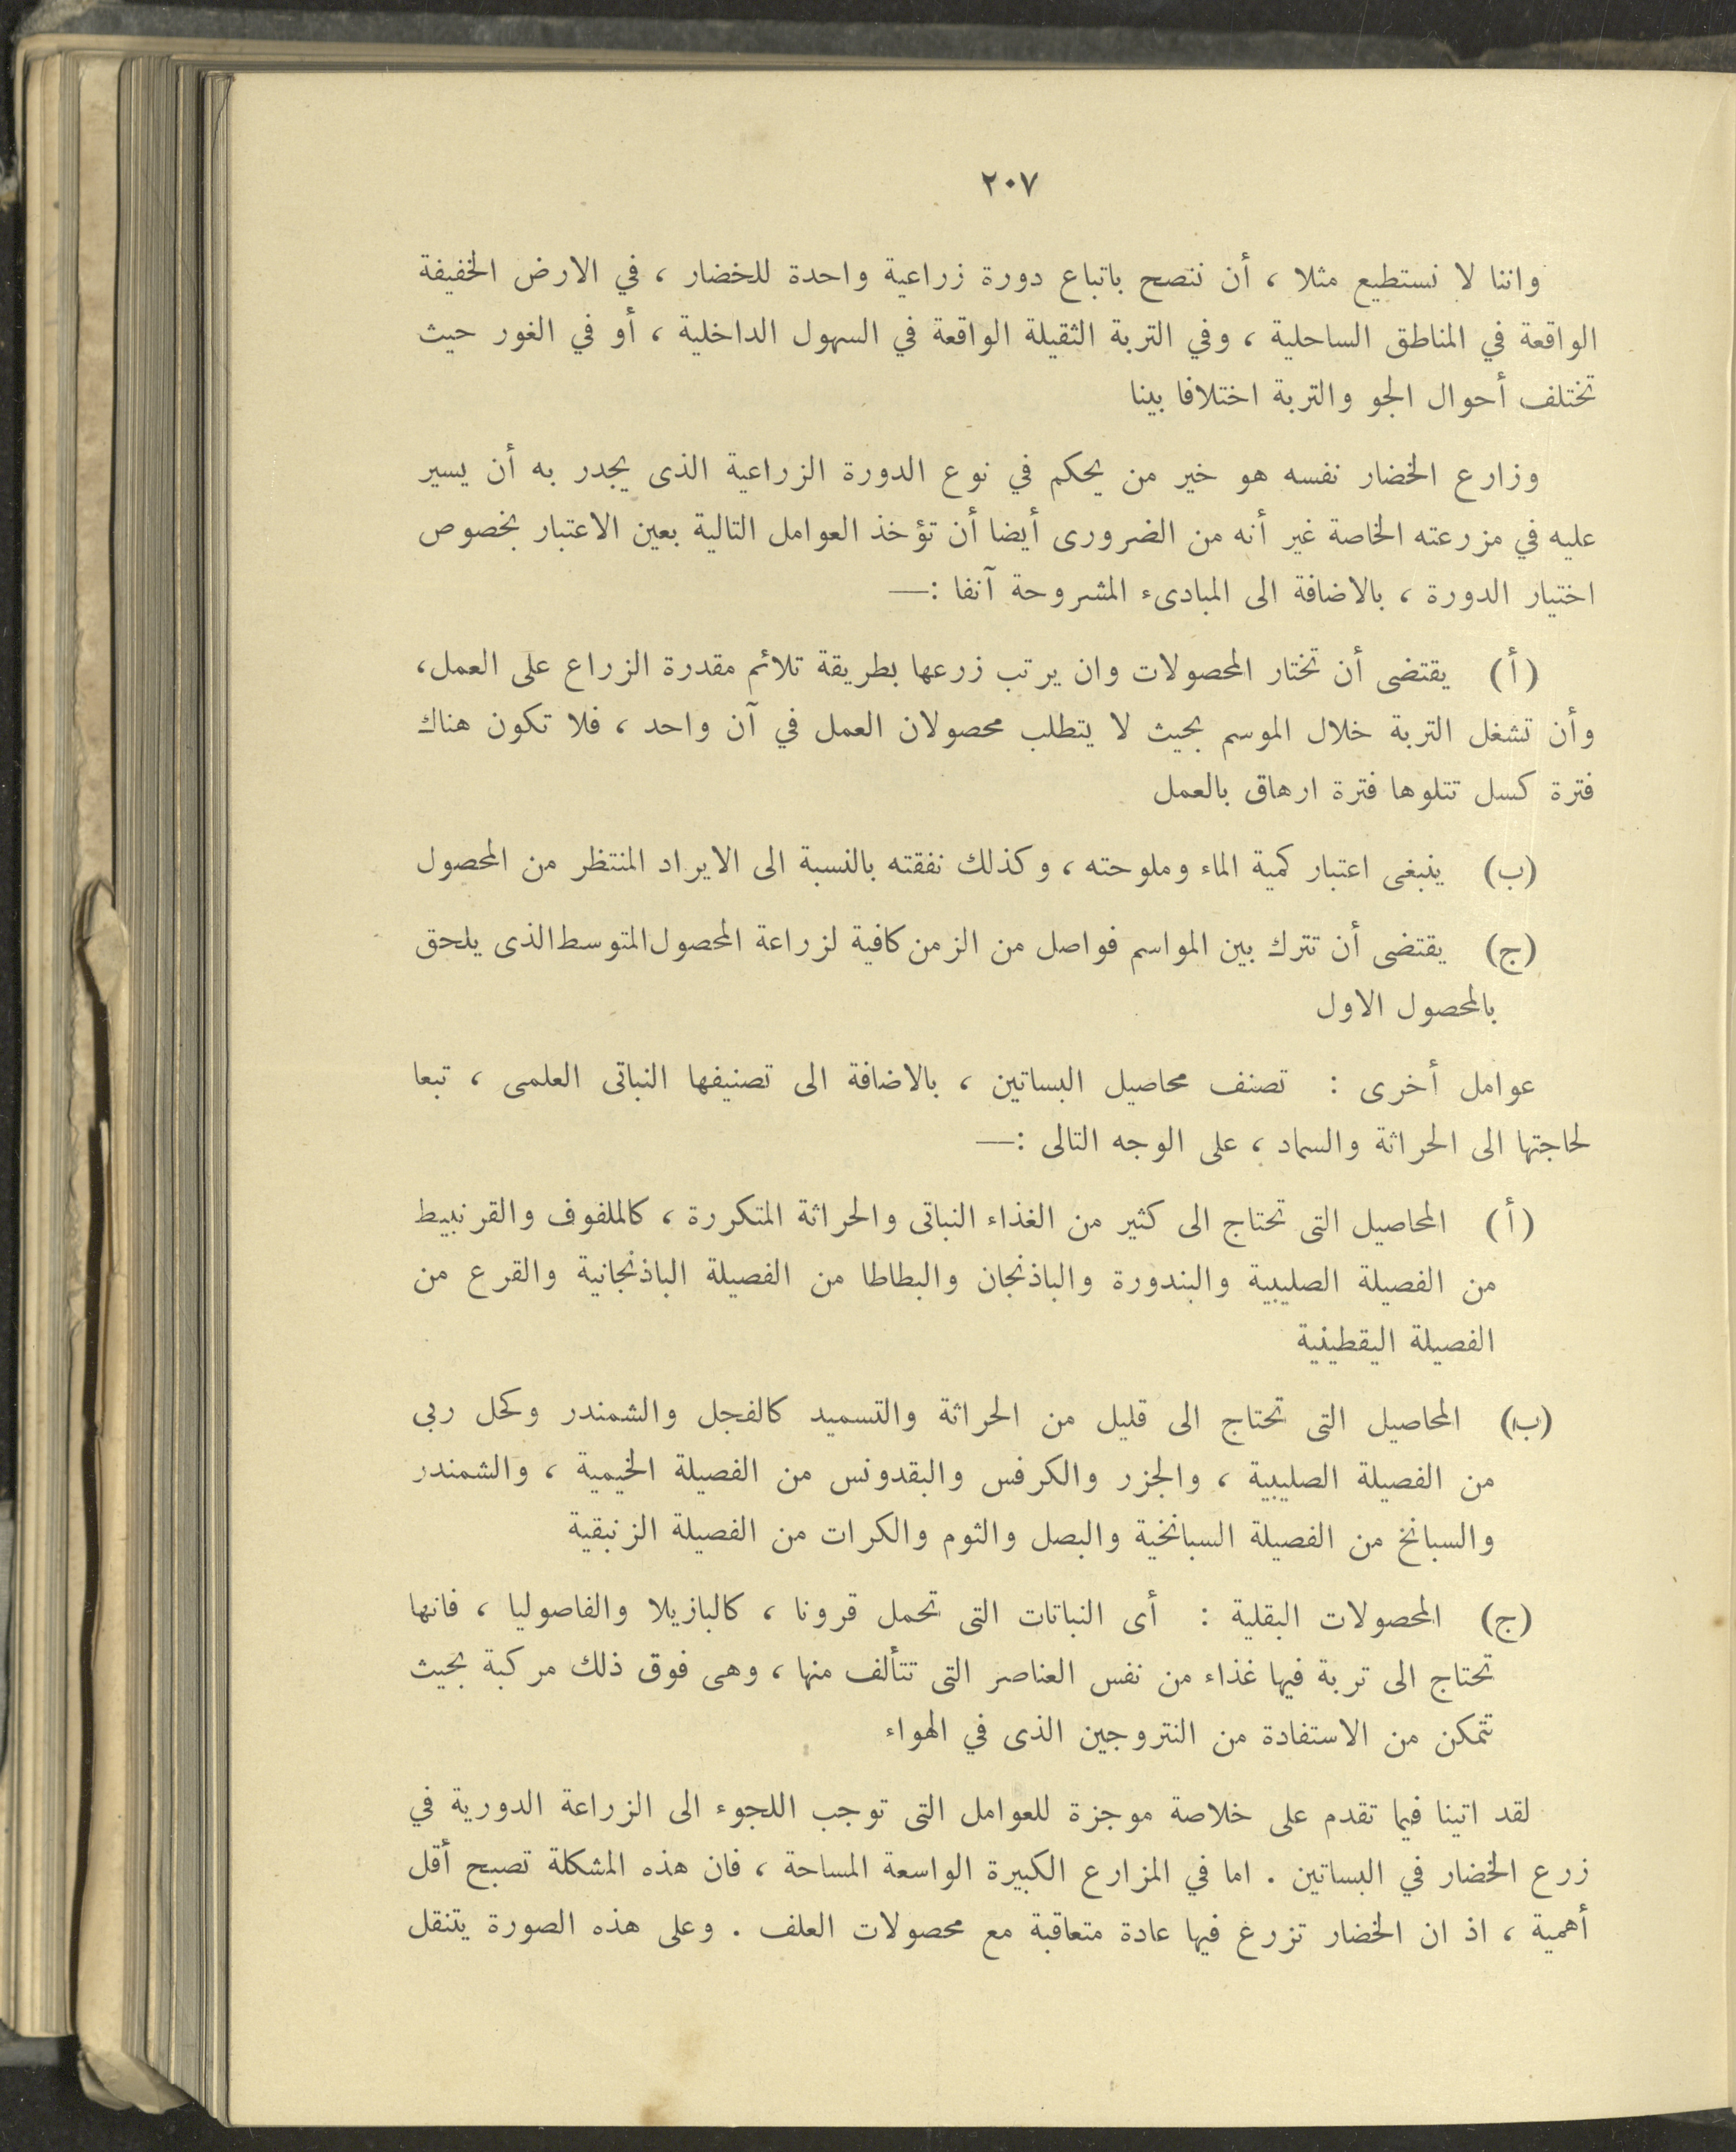 ٢٠٧
واننا لا نستطيع مثلا ، أن ننصح باتباع دورة زراعية واحدة للخضار ، في الارض الخفيفة
الواقعة في المناطق الساحلية ، وفي التربة الثقيلة الواقعة في السهول الداخلية ، أو في الغور حيث
تختلف أحوال الجو والتربة اختلافا بينا
وزارع الخضار نفسه هو خير من يحكم في نوع الدورة الزراعية الذى يجدر به أن يسير
عليه في مزرعته الخاصة غير أنه من الضرورى أيضا أن تؤخذ العوامل التالية بعين الاعتبار بخصوص
اختيار الدورة ، بالاضافة الى المبادىء المشروحة آنفا :—
(أ) يقتضى أن تختار المحصولات وان يرتب زرعها بطريقة تلائم مقدرة الزراع على العمل،
وأن تشغل التربة خلال الموسم بحيث لا يتطلب محصولان العمل في آن واحد ، فلا تكون هناك
فترة كسل تتلوها فترة ارهاق بالعمل
(ب) ينبغى اعتبار كمية الماء وملوحته ، وكذلك نفقته بالنسبة الى الايراد المنتظر من المحصول
(ج) يقتضى أن تترك بين المواسم فواصل من الزمن كافية لزراعة المحصول المتوسط الذى يلحق
بالمحصول الاول
عوامل أخرى : تصنف محاصيل البساتين ، بالاضافة الى تصنيفها النباتى العلمى ، تبعا
لحاجتها الى الحراثة والسماد ، على الوجه التالى :—
(أ) المحاصيل التى تحتاج الى كثير من الغذاء النباتى والحراثة المتكررة ، كالملفوف والقرنبيط
من الفصيلة الصليبية والبندورة والباذنجان والبطاطا من الفصيلة الباذنجانية والقرع من
الفصيلة اليقطينية
(ب) المحاصيل التى تحتاج الى قليل من الحراثة والتسميد كالفجل والشمندر وكحل ربى
من الفصيلة الصليبية ، والجزر والكرفس والبقدونس من الفصيلة الخيمية ، والشمندر
والسبانخ من الفصيلة السبانخية والبصل والثوم والكرات من الفصيلة الزنبقية
(ج) المحصولات البقلية : أى النباتات التى تحمل قرونا ، كالبازيلا والفاصوليا ، فانها
تحتاج الى تربة فيها غذاء من نفس العناصر التى تتألف منها ، وهى فوق ذلك مركبة بحيث
تتمكن من الاستفادة من النتروجين الذى في الهواء
لقد اتينا فيما تقدم على خلاصة موجزة للعوامل التى توجب اللجوء الى الزراعة الدورية في
زرع الخضار في البساتين . اما في المزارع الكبيرة الواسعة المساحة ، فان هذه المشكلة تصبح أقل
أهمية ، اذ ان الخضار تزرغ فيها عادة متعاقبة مع محصولات العلف . وعلى هذه الصورة يتنقل